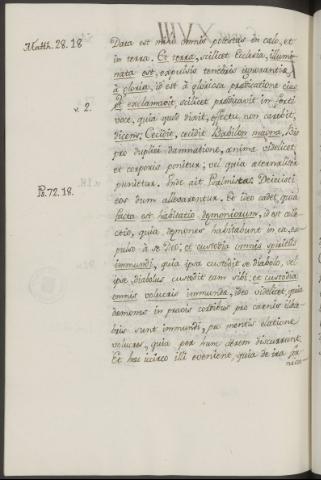 Matth. 28. 18
Data est mihi omnis potestas in cælo, et
in terra. Et terra, scilicet Ecclesia, illumi-
nata est, expulsis tenebris ignorantiæ,
à gloria, id est à gloriosa prædicatione ejus.
v. 2.
Et exclamavit, scilicet prædicavit in forti
voce, quia quod dixit, effectu non carebit,
dicens: Cecidit, cecidit Babilon magna. Bis
pro duplici damnatione, animæ videlicet,
et corporis ponitur; vel quia æternaliter
punietur. Unde ait Psalmista: Dejecisti
Ps. 72. 18.
eos dum allevarentur. Et ideo cadet, quia
facta est habitatio dæmoniorum, id est col-
lectio, quia dæmones habitabunt in ea, ex-
pulso à se Deo; et custodia omnis spiritus
immundi, quia ipsa custodit se diabolo, vel
ipse diabolus custodit eam sibi; et custodia
omnis volucris immundæ, ideo videlicet, quia
dæmones in pravis cordibus pro carnis
sunt immundi, pro mentis elatione
volucres, quia per hunc aërem discurrunt.
Et hæc idcirco illi evenient, quia de ira for-
nica-